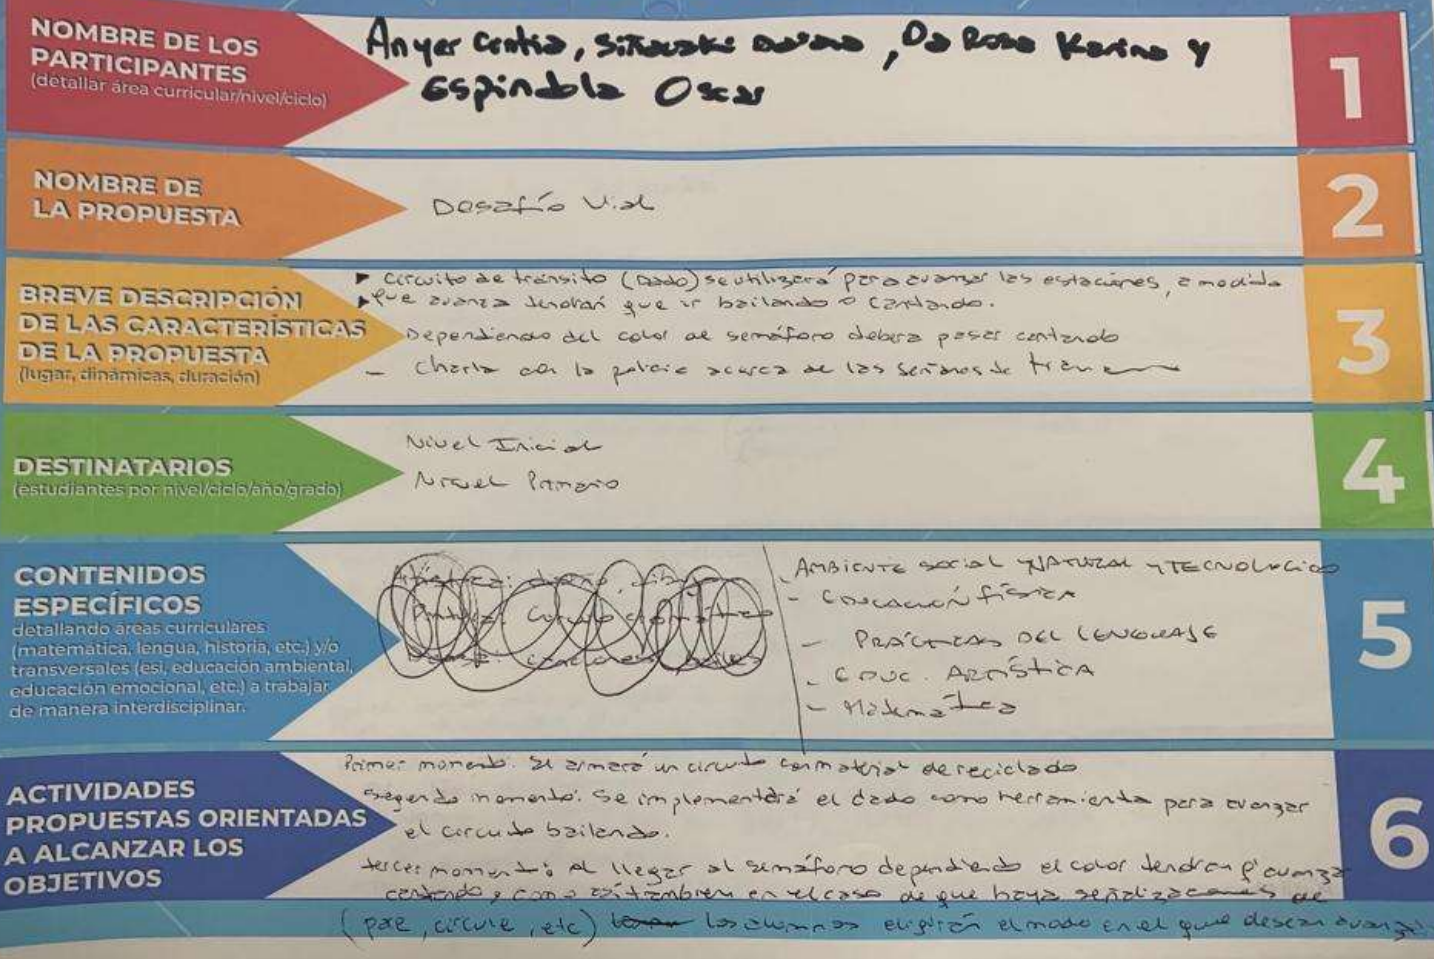 NOMBRE DE LOS
PARTICIPANTES
(detallar área curricular/nivel/ciclo)
Anyer Cintia, Da Rosa Karina y
Espindola Oscar
1
NOMBRE DE
LA PROPUESTA
Desafío Vial
2
BREVE DESCRIPCIÓN
DE LAS CARACTERÍSTICAS
DE LA PROPUESTA
(lugar, dinámicas, duración)
circuito de tránsito (Dado) se utilizará para avanzar las estaciones, a medida
que avanza tendrán que ir bailando o cantando.
Dependiendo del color de semáforo debera pasar cantando
- Charla con la policia acerca de las señales de
3
DESTINATARIOS
(estudiantes por nivel/ciclo/año/grado)
Nivel Inicial
Nivel Primario
4
CONTENIDOS
ESPECÍFICOS
detallando áreas curriculares
(matemática, lengua, historia, etc.) y/o
transversales (esi, educación ambiental,
educación emocional, etc.) a trabajar
de manera interdisciplinar.
- AMBIENTE social y NATURAL y TECNOLOGICO
- EDUCACIÓN FÍSICA
- PRÁCTICAS DEL LENGUAJE
- EDUC. ARTÍSTICA
- Matemática
5
ACTIVIDADES
PROPUESTAS ORIENTADAS
A ALCANZAR LOS
OBJETIVOS
Primer momento: Se armará un circuito con material de reciclado
Segundo momento: Se implementará el dado como herramienta para avanzar
el circuito bailando.
tercer momento: Al llegar al semáforo dependiendo el color tendrán q' avanzar
cantando, como así tambien en el caso de que haya señalizaciones de
(pare, circule, etc) los alumnos eligirán el modo en el que desean avanzar
6